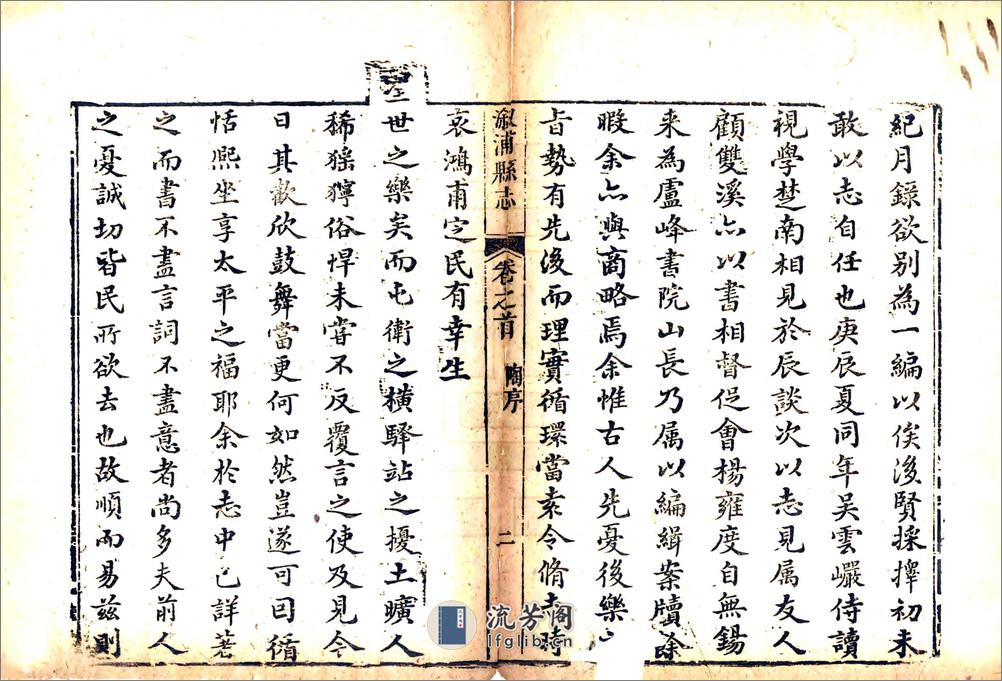 紀月錄欲別為一編以俟後賢採擇初未
敢以志自任也庚辰夏同年吳雲巖侍讀
視學楚南相見於辰談次以志見属友人
顧雙溪亦以書相督促會楊雍度自無錫
来為盧峰書院山長乃属以編緝案牘除
暇余亦與商略焉余惟古人先憂後樂
㫖勢有先後而理實循環當素令脩志時
溆浦縣志
卷之首
陶序
二
哀鴻甫定民有幸生
聖世之樂矣而屯衛之横驛站之擾土曠人
稀猺獞俗悍未嘗不反覆言之使及見今
日其歡欣鼓舞當更何如然豈遂可曰循
恬熙坐享太平之福耶余於志中已詳著
之而書不盡言詞不盡意者尚多夫前人
之憂誠切皆民所欲去也故順而易兹則
流芳阁
lfglib.cn